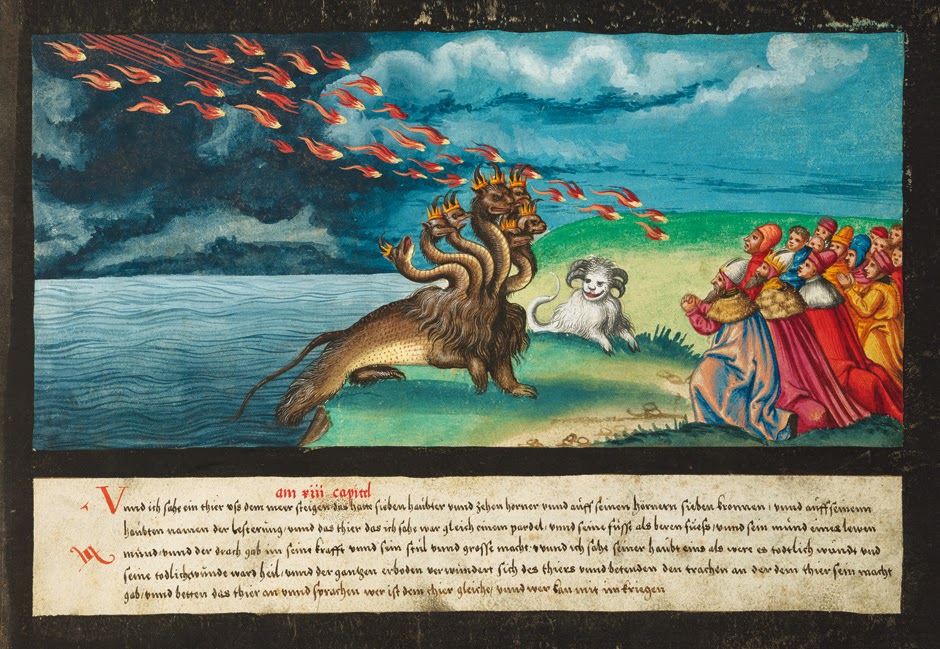 am xiii capitel
Vnnd ich sahe ein thier vss dem meer steigen das hatt sieben haübter vnnd zehen horner vnnd aüff seinen hörnern sieben kronnen / vnnd aüff seinenn
haübten namen der lesterüng / vnnd das thier das ich sahe war gleich einem pardel / vnnd seine füsse als beren fuess / vnnd sein münd eines lewen
münd / vnnd der drach gab im seine krafft vnnd sein stül vnnd grosse macht / vnnd ich sahe seiner haübt eins als were es todtlich wündt vnd
seine todlich wünde ward heil / vnnd der gantzen erdboden verwündert sich des thiers vnnd betenden den trachen an der dem thier sein macht
gab / vnnd betten das thier an vnnd sprachen wer ist dem thier gleiche / vnnd wer kan mit im kriegen